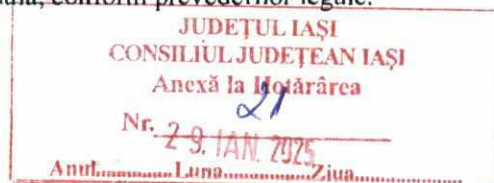 conform prevederilor legale.
JUDEȚUL IAȘI
CONSILIUL JUDEȚEAN IAȘI
Anexă la Hotărârea
Nr. 21
29. IAN. 2025
Anul............Luna............Ziua............